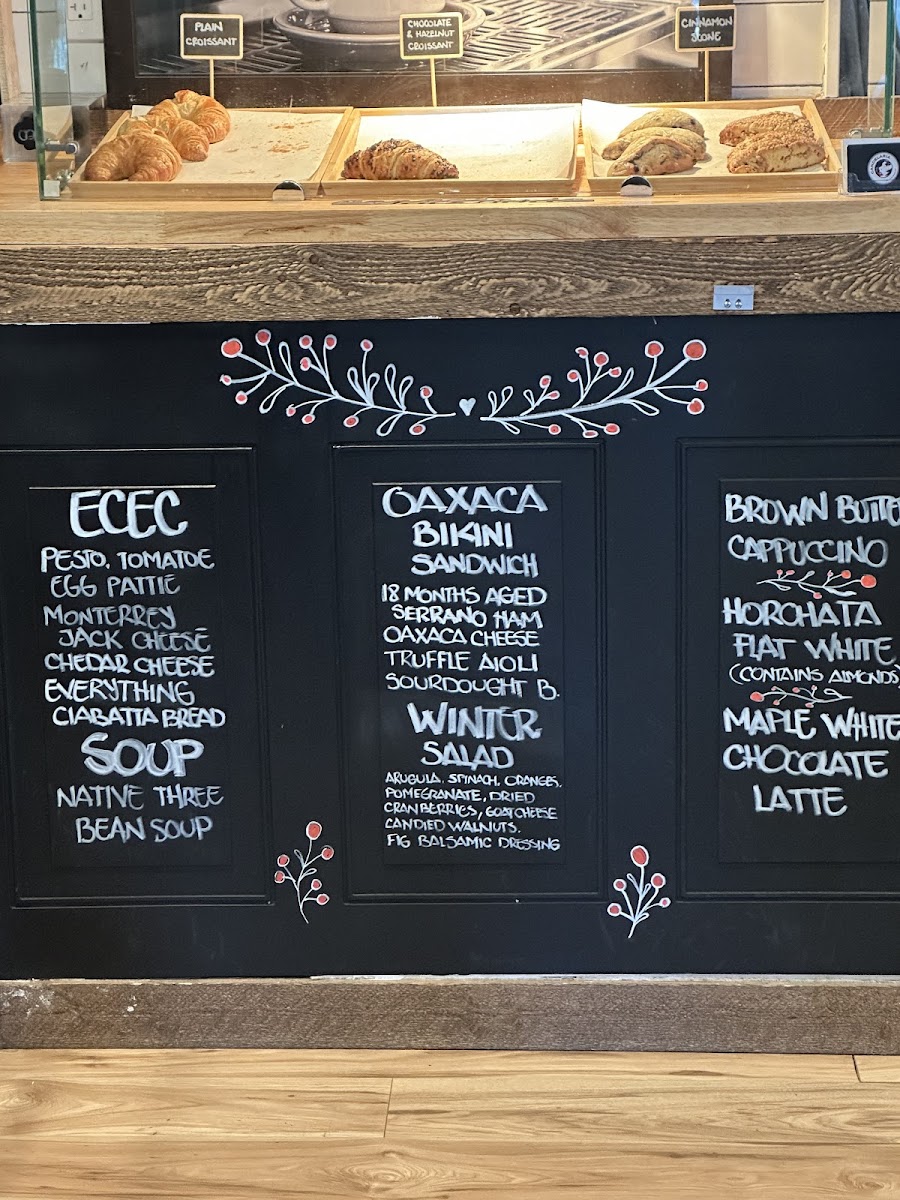 PLAIN
CROISSANT
CHOCOLATE
& HAZELNUT
CROISSANT
CINNAMON
SCONE
ECEC
PESTO, TOMATOE
EGG PATTIE
MONTERREY
JACK CHEESE
CHEDAR CHEESE
EVERYTHING
CIABATTA BREAD
SOUP
NATIVE THREE
BEAN SOUP
OAXACA
BIKINI
SANDWICH
18 MONTHS AGED
SERRANO HAM
OAXACA CHEESE
TRUFFLE AIOLI
SOURDOUGHT B.
WINTER
SALAD
ARUGULA, SPINACH, ORANGES,
POMEGRANATE, DRIED
CRANBERRIES, GOAT CHEESE
CANDIED WALNUTS.
FIG BALSAMIC DRESSING
BROWN BUTTE
CAPPUCCINO
HORCHATA
FLAT WHITE
(CONTAINS ALMONDS)
MAPLE WHITE
CHOCOLATE
LATTE